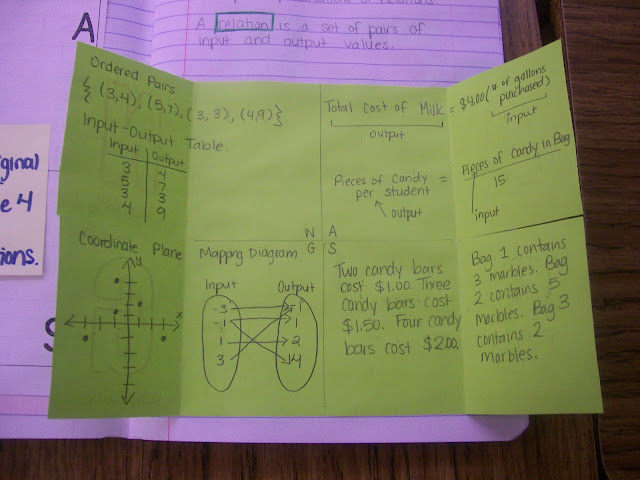 A
A relation is a set of pairs of
input and output values.
iginal
e 4
ions.
Ordered Pairs
{ (3,4), (5,7), (3,3), (4,9) }
Input-Output Table
Input Output
3 4
5 7
3 3
4 9
Total Cost of Milk = $4.00 (# of gallons
purchased)
output
input
Pieces of candy
per student =
output
Pieces of Candy in Bag
15
input
N A
G S
Coordinate Plane
y
x
Mapping Diagram
Input Output
-3 -1
-1 1
1 2
3 14
Two candy bars
cost $1.00. Three
candy bars cost
$1.50. Four candy
bars cost $2.00.
Bag 1 contains
3 marbles. Bag
2 contains 5
marbles. Bag 3
contains 2
marbles.